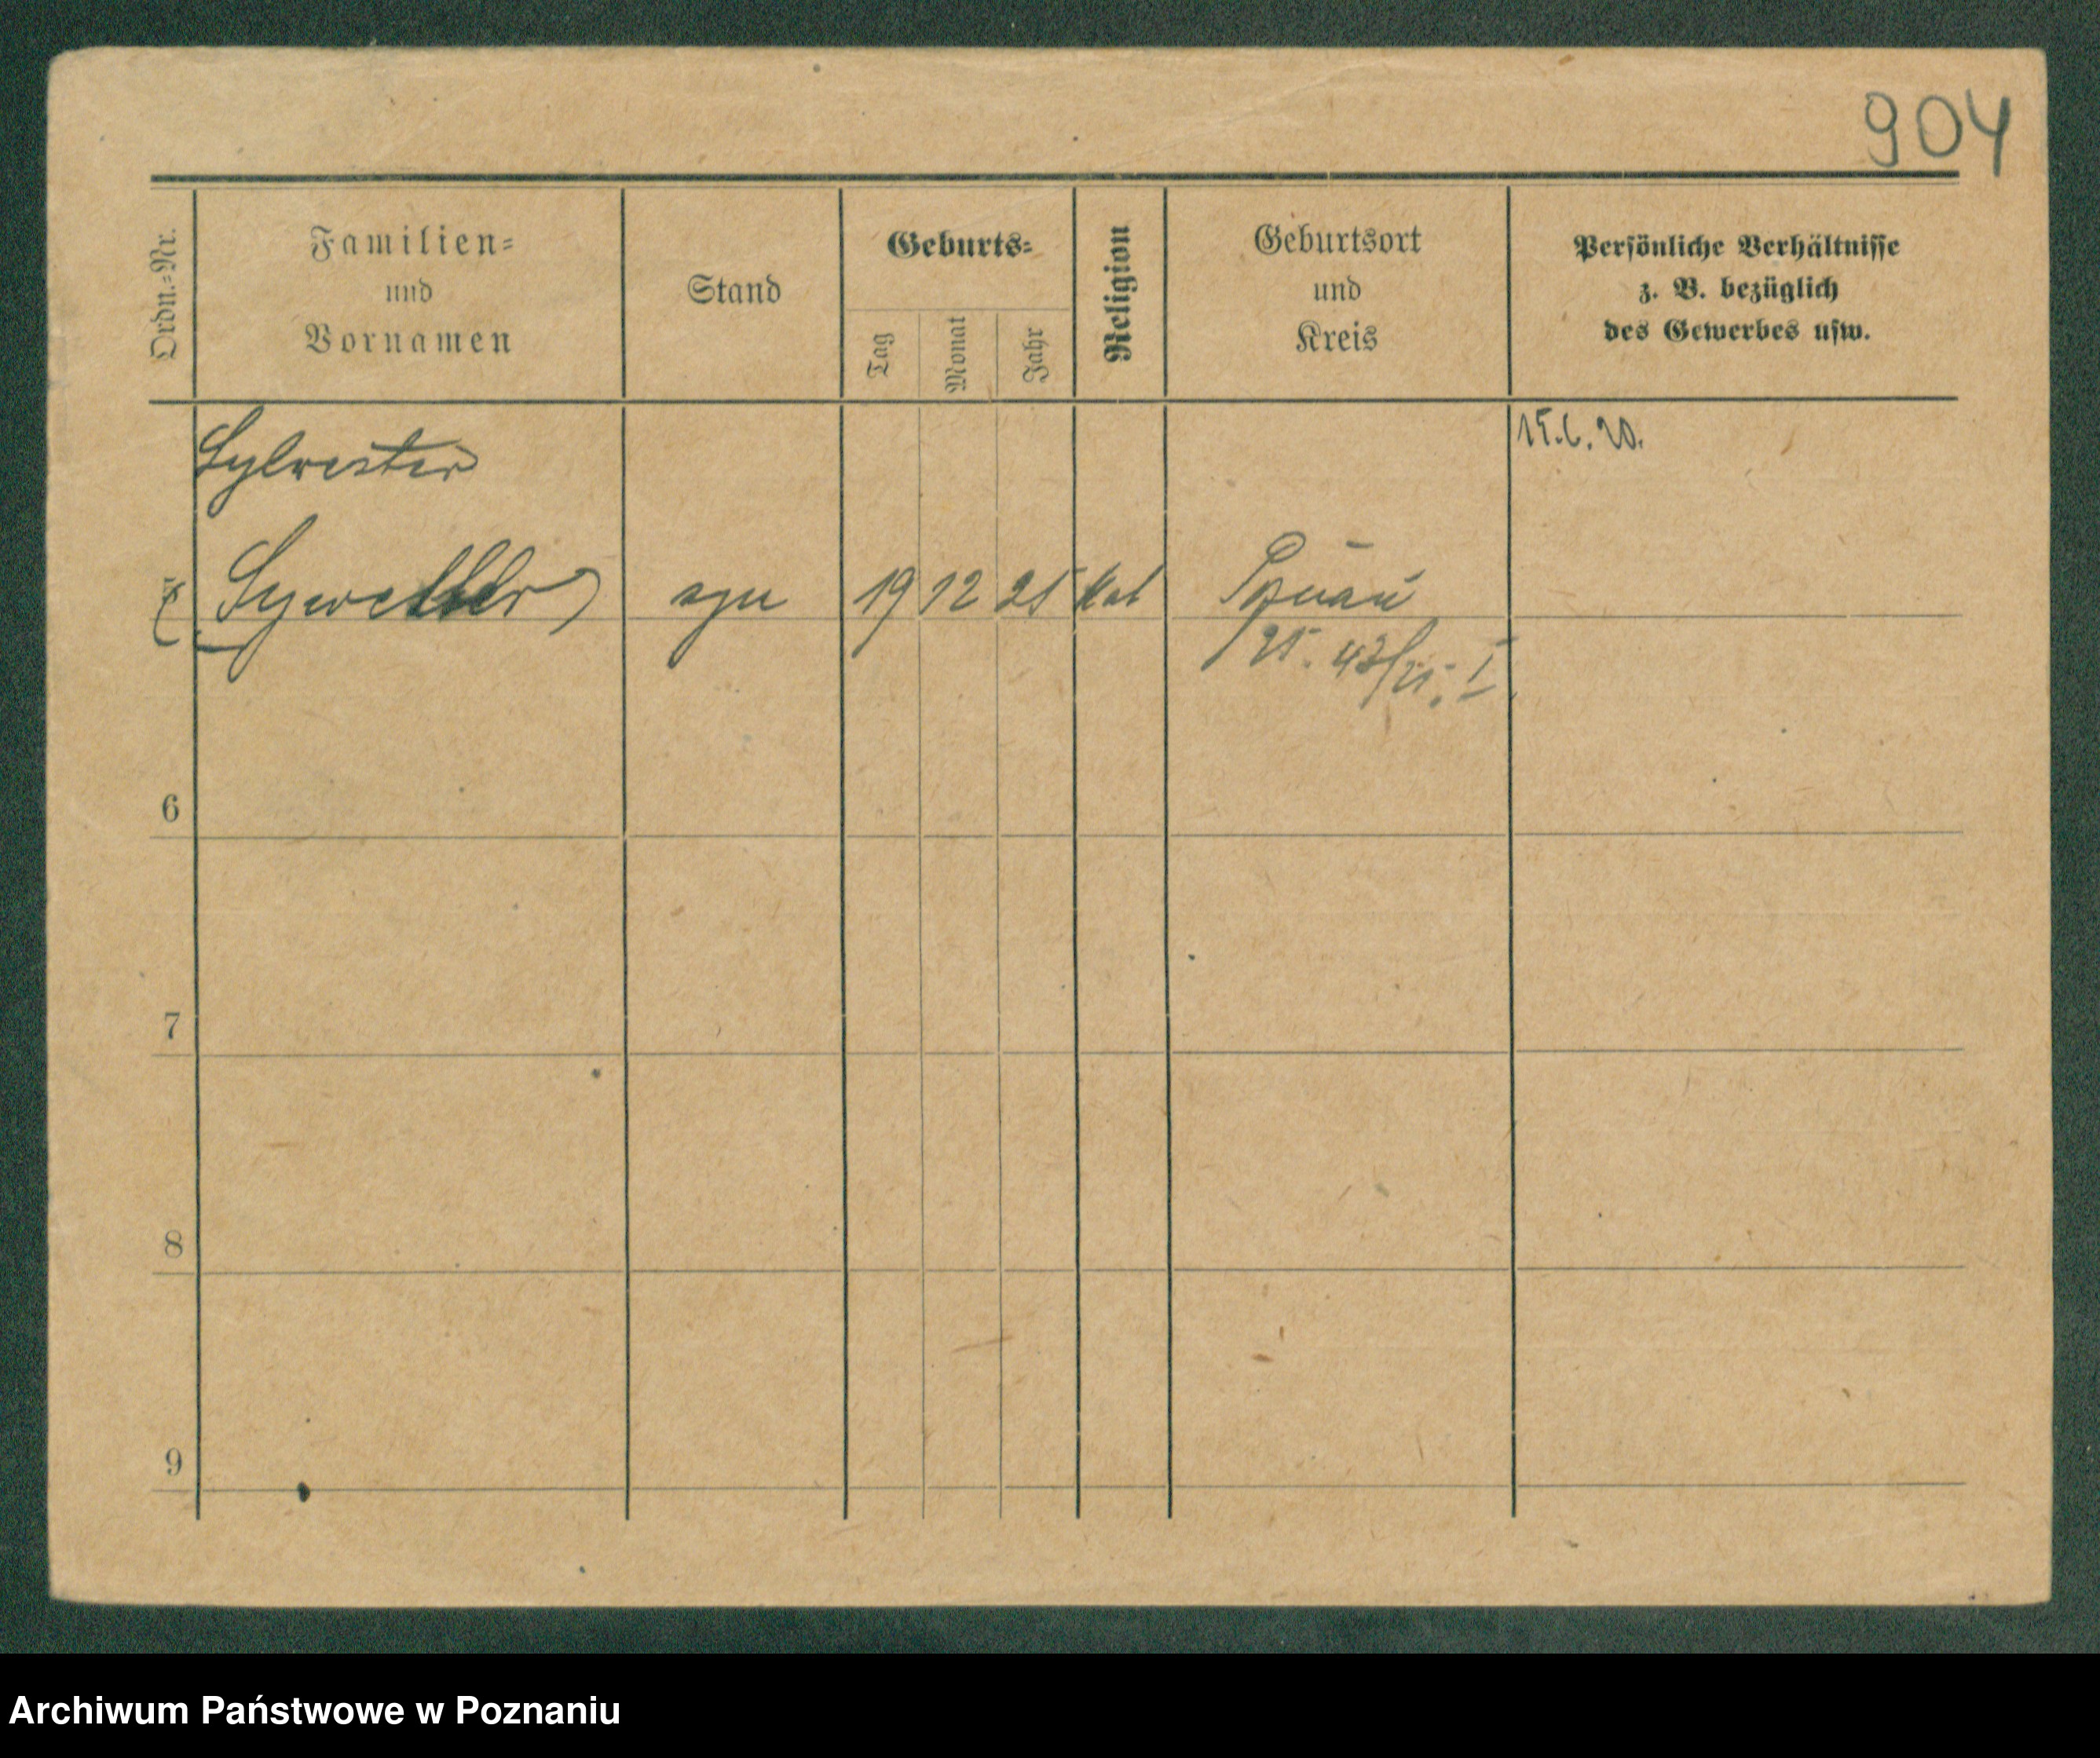 904
Ordn.-Nr.
Familien-
und
Vornamen
Stand
Geburts-
Tag
Monat
Jahr
Religion
Geburtsort
und
Kreis
Persönliche Verhältnisse
z. B. bezüglich
des Gewerbes usw.
Sylvester
15.6.20.
syn 19 12 25 kat Poznań
6
7
8
9
Archiwum Państwowe w Poznaniu